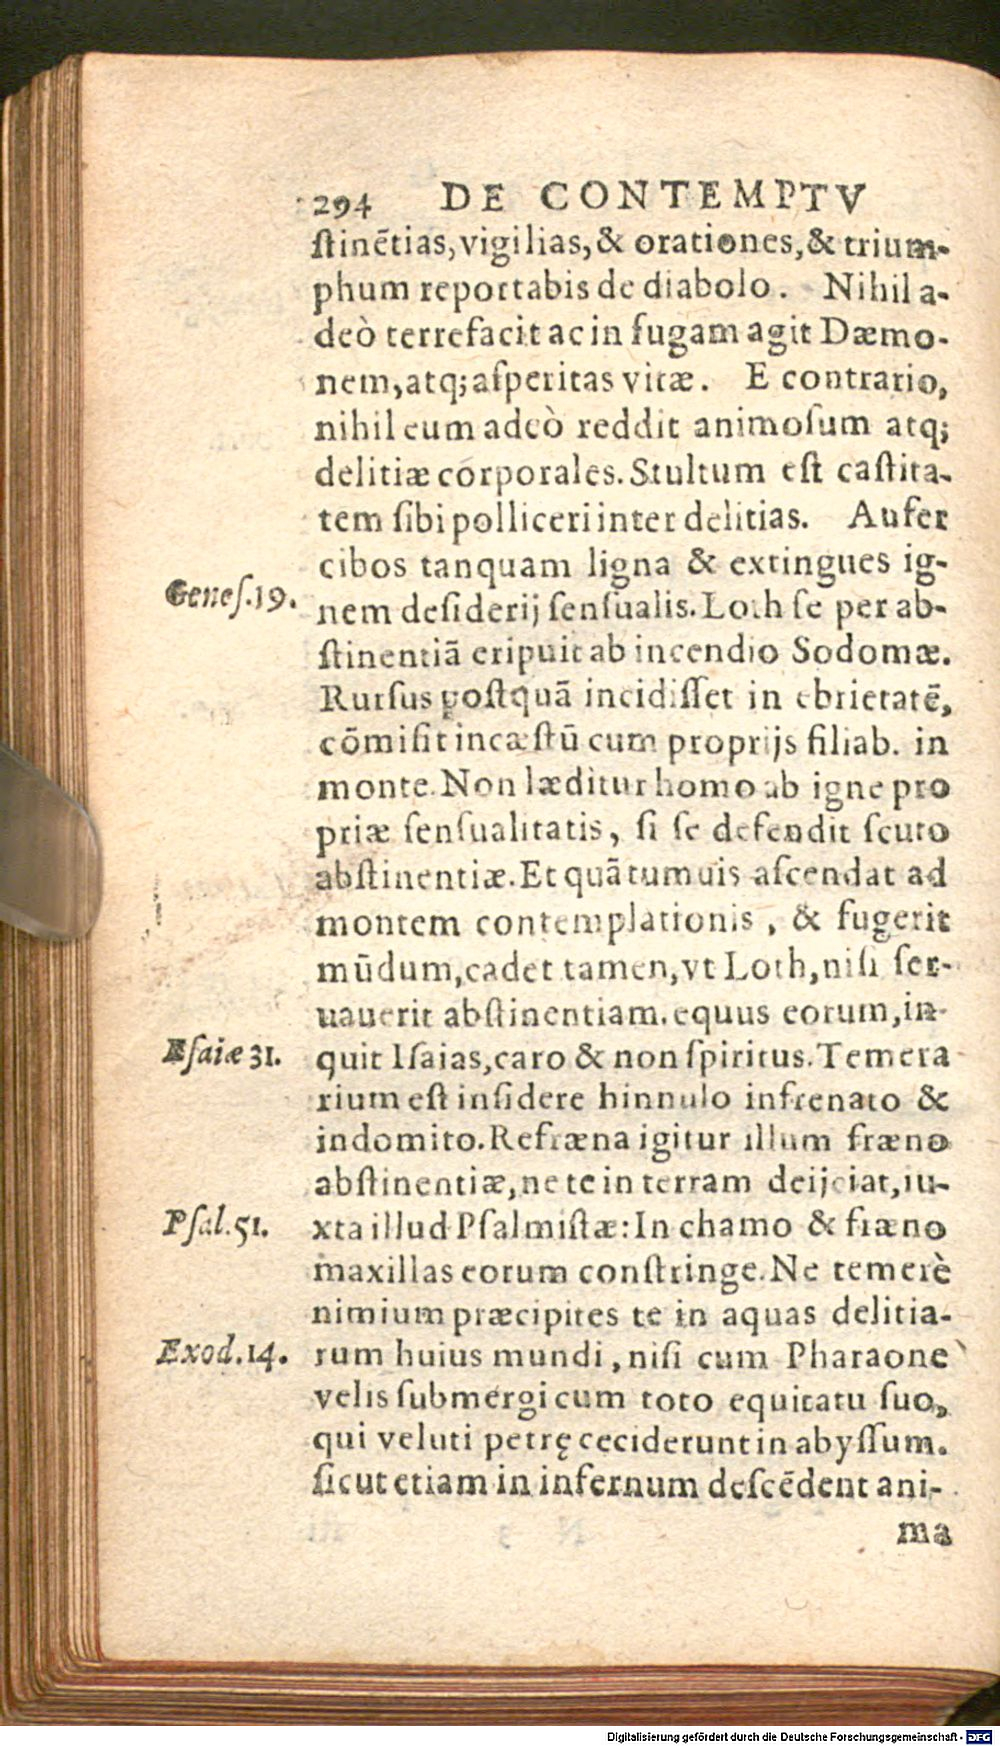 294 DE CONTEMPTV
ſtinētias, vigilias, & orationes, & trium-
phum reportabis de diabolo. Nihil a-
deò terrefacit ac in fugam agit Dæmo-
nem, atq; aſperitas vitæ. E contrario,
nihil eum adeò reddit animoſum atq;
delitiæ corporales. Stultum eſt caſtita-
tem ſibi polliceri inter delitias. Aufer
cibos tanquam ligna & extingues ig-
Geneſ. 19. nem deſiderij ſenſualis. Loth ſe per ab-
ſtinentiā eripuit ab incendio Sodomæ.
Rurſus poſtquā incidiſſet in ebrietatē,
cōmiſit incæſtū cum proprijs filiab. in
monte. Non læditur homo ab igne pro
priæ ſenſualitatis, ſi ſe defendit ſcuto
abſtinentiæ. Et quātumuis aſcendat ad
montem contemplationis, & fugerit
mūdum, cadet tamen, vt Loth, niſi ſer-
uauerit abſtinentiam. equus eorum, in-
Eſaiæ 31. quit Iſaias, caro & non ſpiritus. Temera
rium eſt inſidere hinnulo infrenato &
indomito. Refræna igitur illum fræno
abſtinentiæ, ne te in terram deijciat, iu-
Pſal. 51. xta illud Pſalmiſtæ: In chamo & fræno
maxillas eorum conſtringe. Ne temerè
nimium præcipites te in aquas delitia-
Exod. 14. rum huius mundi, niſi cum Pharaone
velis ſubmergi cum toto equitatu ſuo,
qui veluti petrę ceciderunt in abyſſum.
ſicut etiam in infernum deſcēdent ani-
ma
Digitalisierung gefördert durch die Deutsche Forschungsgemeinschaft - DFG